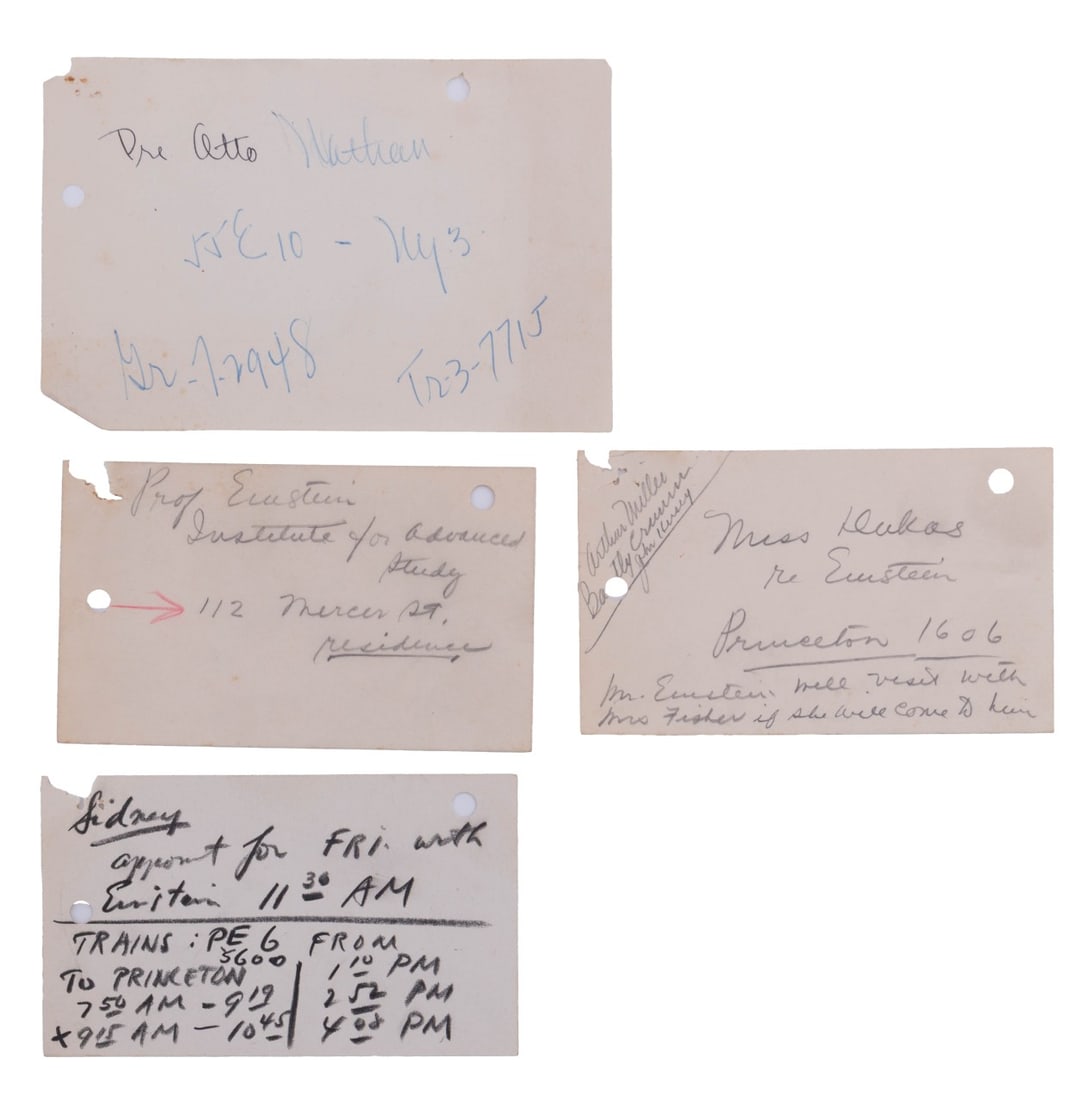 Pre Otto Nathan
55 E 10 - Ny 3
Gr-7-2948 Tr-3-7715
Prof Einstein
Institute for Advanced
Study
112 Mercer St.
residence
Arthur Miller
Miss Dukas
re Einstein
Princeton 1606
Mr. Einstein will visit with
Mrs Fisher if she will come to him
Sidney
appoint for FRI. with
Einstein 11 30 AM
TRAINS : PE 6 FROM
5600
TO PRINCETON
1 10 PM
7 50 AM - 9 19
2 52 PM
x 9 15 AM - 10 45
4 08 PM